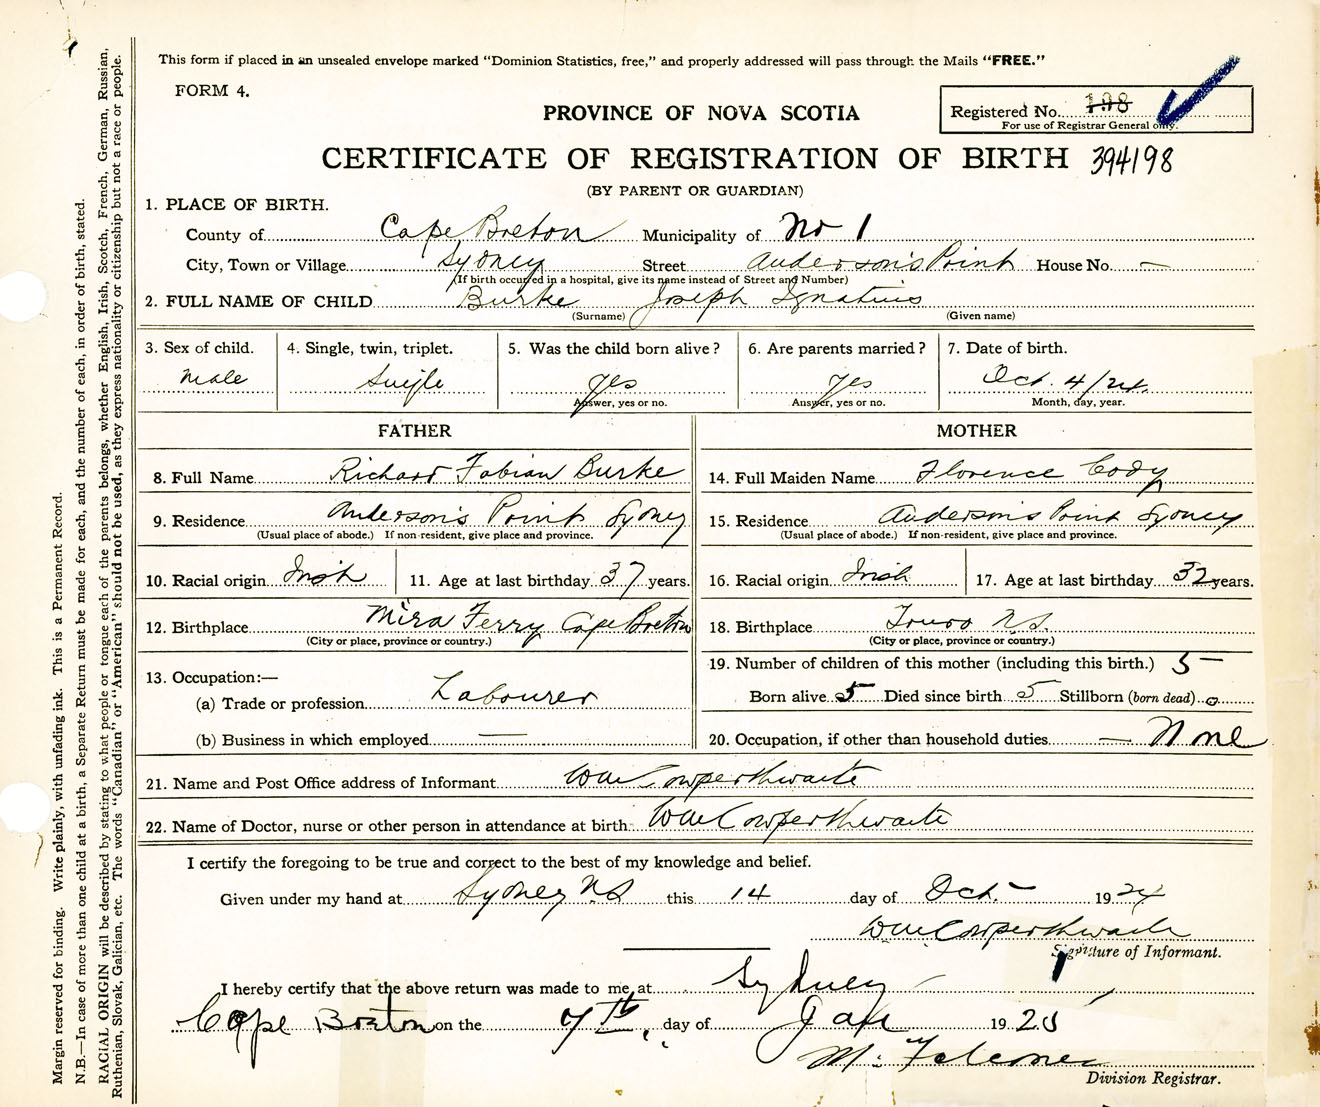 This form if placed in an unsealed envelope marked "Dominion Statistics, free," and properly addressed will pass through the Mails "FREE."
FORM 4.
PROVINCE OF NOVA SCOTIA
Registered No. 198
For use of Registrar General only.
CERTIFICATE OF REGISTRATION OF BIRTH 394198
(BY PARENT OR GUARDIAN)
1. PLACE OF BIRTH.
County of Cape Breton Municipality of No 1
City, Town or Village Sydney Street Anderson's Point House No. —
(If birth occurred in a hospital, give its name instead of Street and Number)
2. FULL NAME OF CHILD Burke Joseph Ignatius
(Surname) (Given name)
3. Sex of child. 4. Single, twin, triplet. 5. Was the child born alive? 6. Are parents married? 7. Date of birth.
Male Single Yes Yes Oct. 4/24
Answer, yes or no. Answer, yes or no. Month, day, year.
FATHER MOTHER
8. Full Name Richard Fabian Burke 14. Full Maiden Name Florence Cody
9. Residence Anderson's Point Sydney 15. Residence Anderson's Point Sydney
(Usual place of abode.) If non-resident, give place and province. (Usual place of abode.) If non-resident, give place and province.
10. Racial origin Irish 11. Age at last birthday 37 years. 16. Racial origin Irish 17. Age at last birthday 32 years.
12. Birthplace Mira Ferry Cape Breton 18. Birthplace Truro N.S.
(City or place, province or country.) (City or place, province or country.)
13. Occupation:—
(a) Trade or profession Labourer
(b) Business in which employed —
19. Number of children of this mother (including this birth.) 5
Born alive 5 Died since birth 5 Stillborn (born dead) 0
20. Occupation, if other than household duties — None
21. Name and Post Office address of Informant Wm Cowperthwaite
22. Name of Doctor, nurse or other person in attendance at birth. Wm Cowperthwaite
I certify the foregoing to be true and correct to the best of my knowledge and belief.
Given under my hand at Sydney N.S this 14 day of Oct. 1924
Wm Cowperthwaite
Signature of Informant.
I hereby certify that the above return was made to me at Sydney
Cape Breton on the 7th day of Jan 1925
Division Registrar.
Margin reserved for binding. Write plainly, with unfading ink. This is a Permanent Record.
N.B.—In case of more than one child at a birth, a Separate Return must be made for each, and the number of each, in order of birth, stated.
RACIAL ORIGIN will be described by stating to what people or tongue each of the parents belongs, whether English, Irish, Scotch, French, German, Russian,
Ruthenian, Slovak, Galician, etc. The words "Canadian" or "American" should not be used, as they express nationality or citizenship but not a race or people.